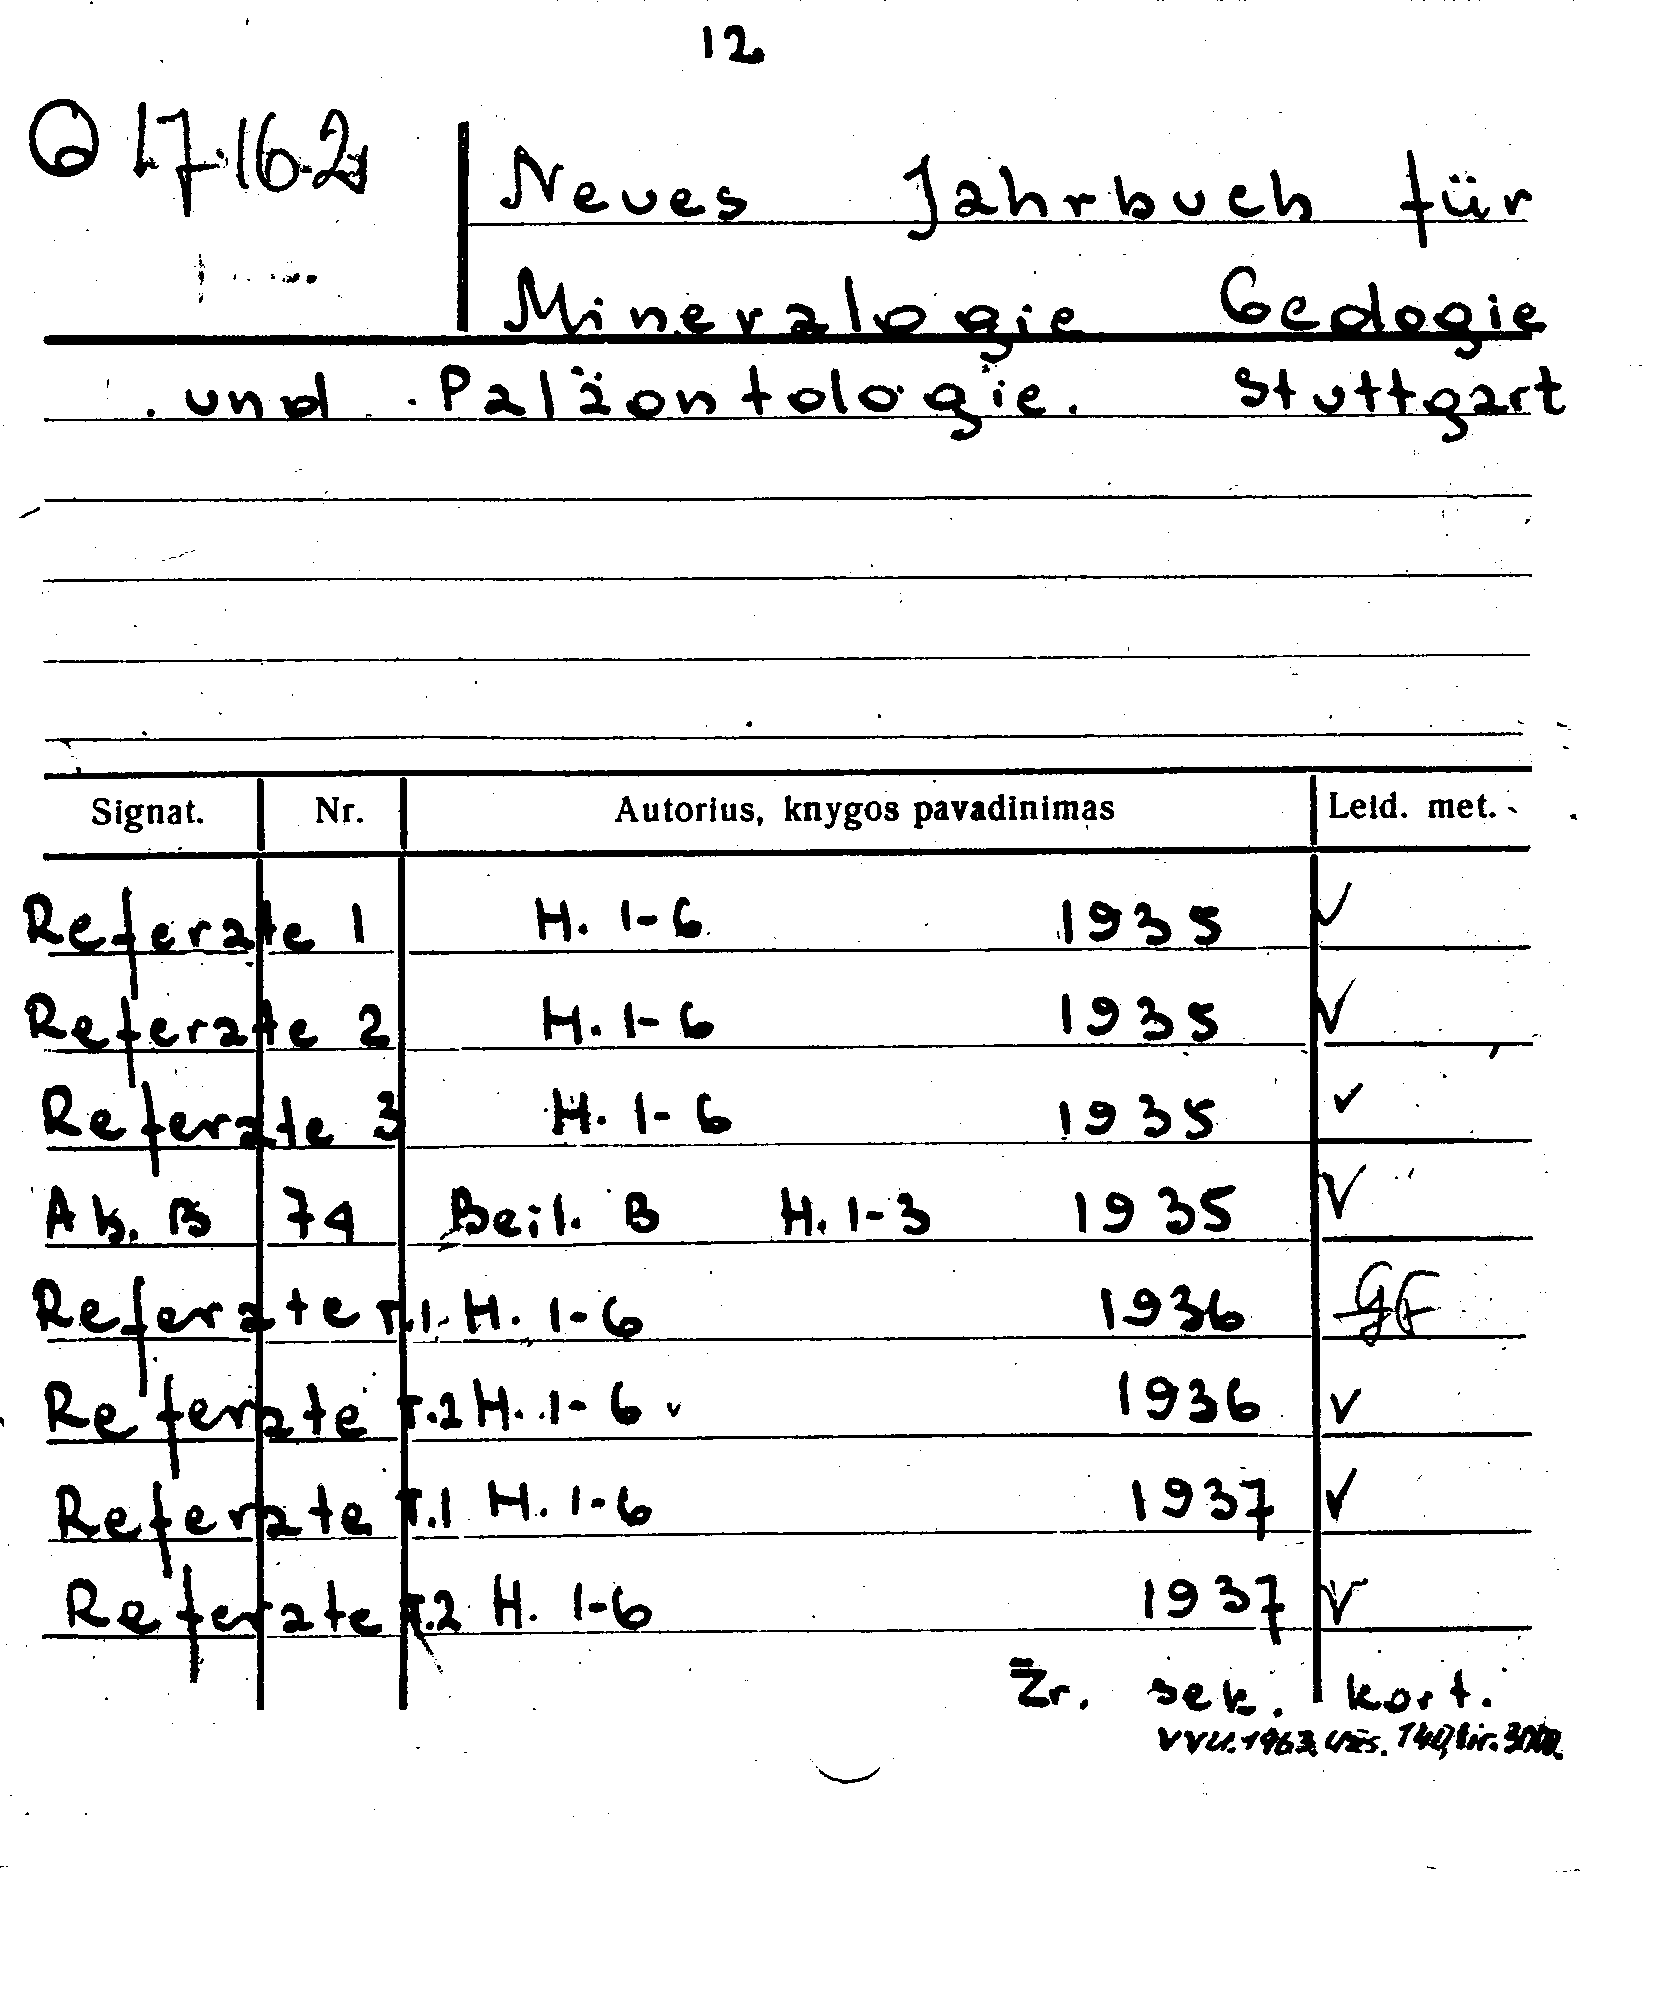 12
17.16.2
Neues Jahrbuch für
Mineralogie Geologie
und Paläontologie. Stuttgart
Signat. Nr. Autorius, knygos pavadinimas Leid. met.
Referate 1 H. 1-6 1935 v
Referate 2 H. 1-6 1935 v
Referate 3 H. 1-6 1935 v
Ab. B 74 Beil. B H. 1-3 1935 v
Referate T.1. H. 1-6 1936
Referate T.2 H. 1-6 v 1936 v
Referate T.1 H. 1-6 1937 v
Referate T.2 H. 1-6 1937 v
Žr. sek. kort.
VVU. 1963. Užs. 140, tir. 3000.